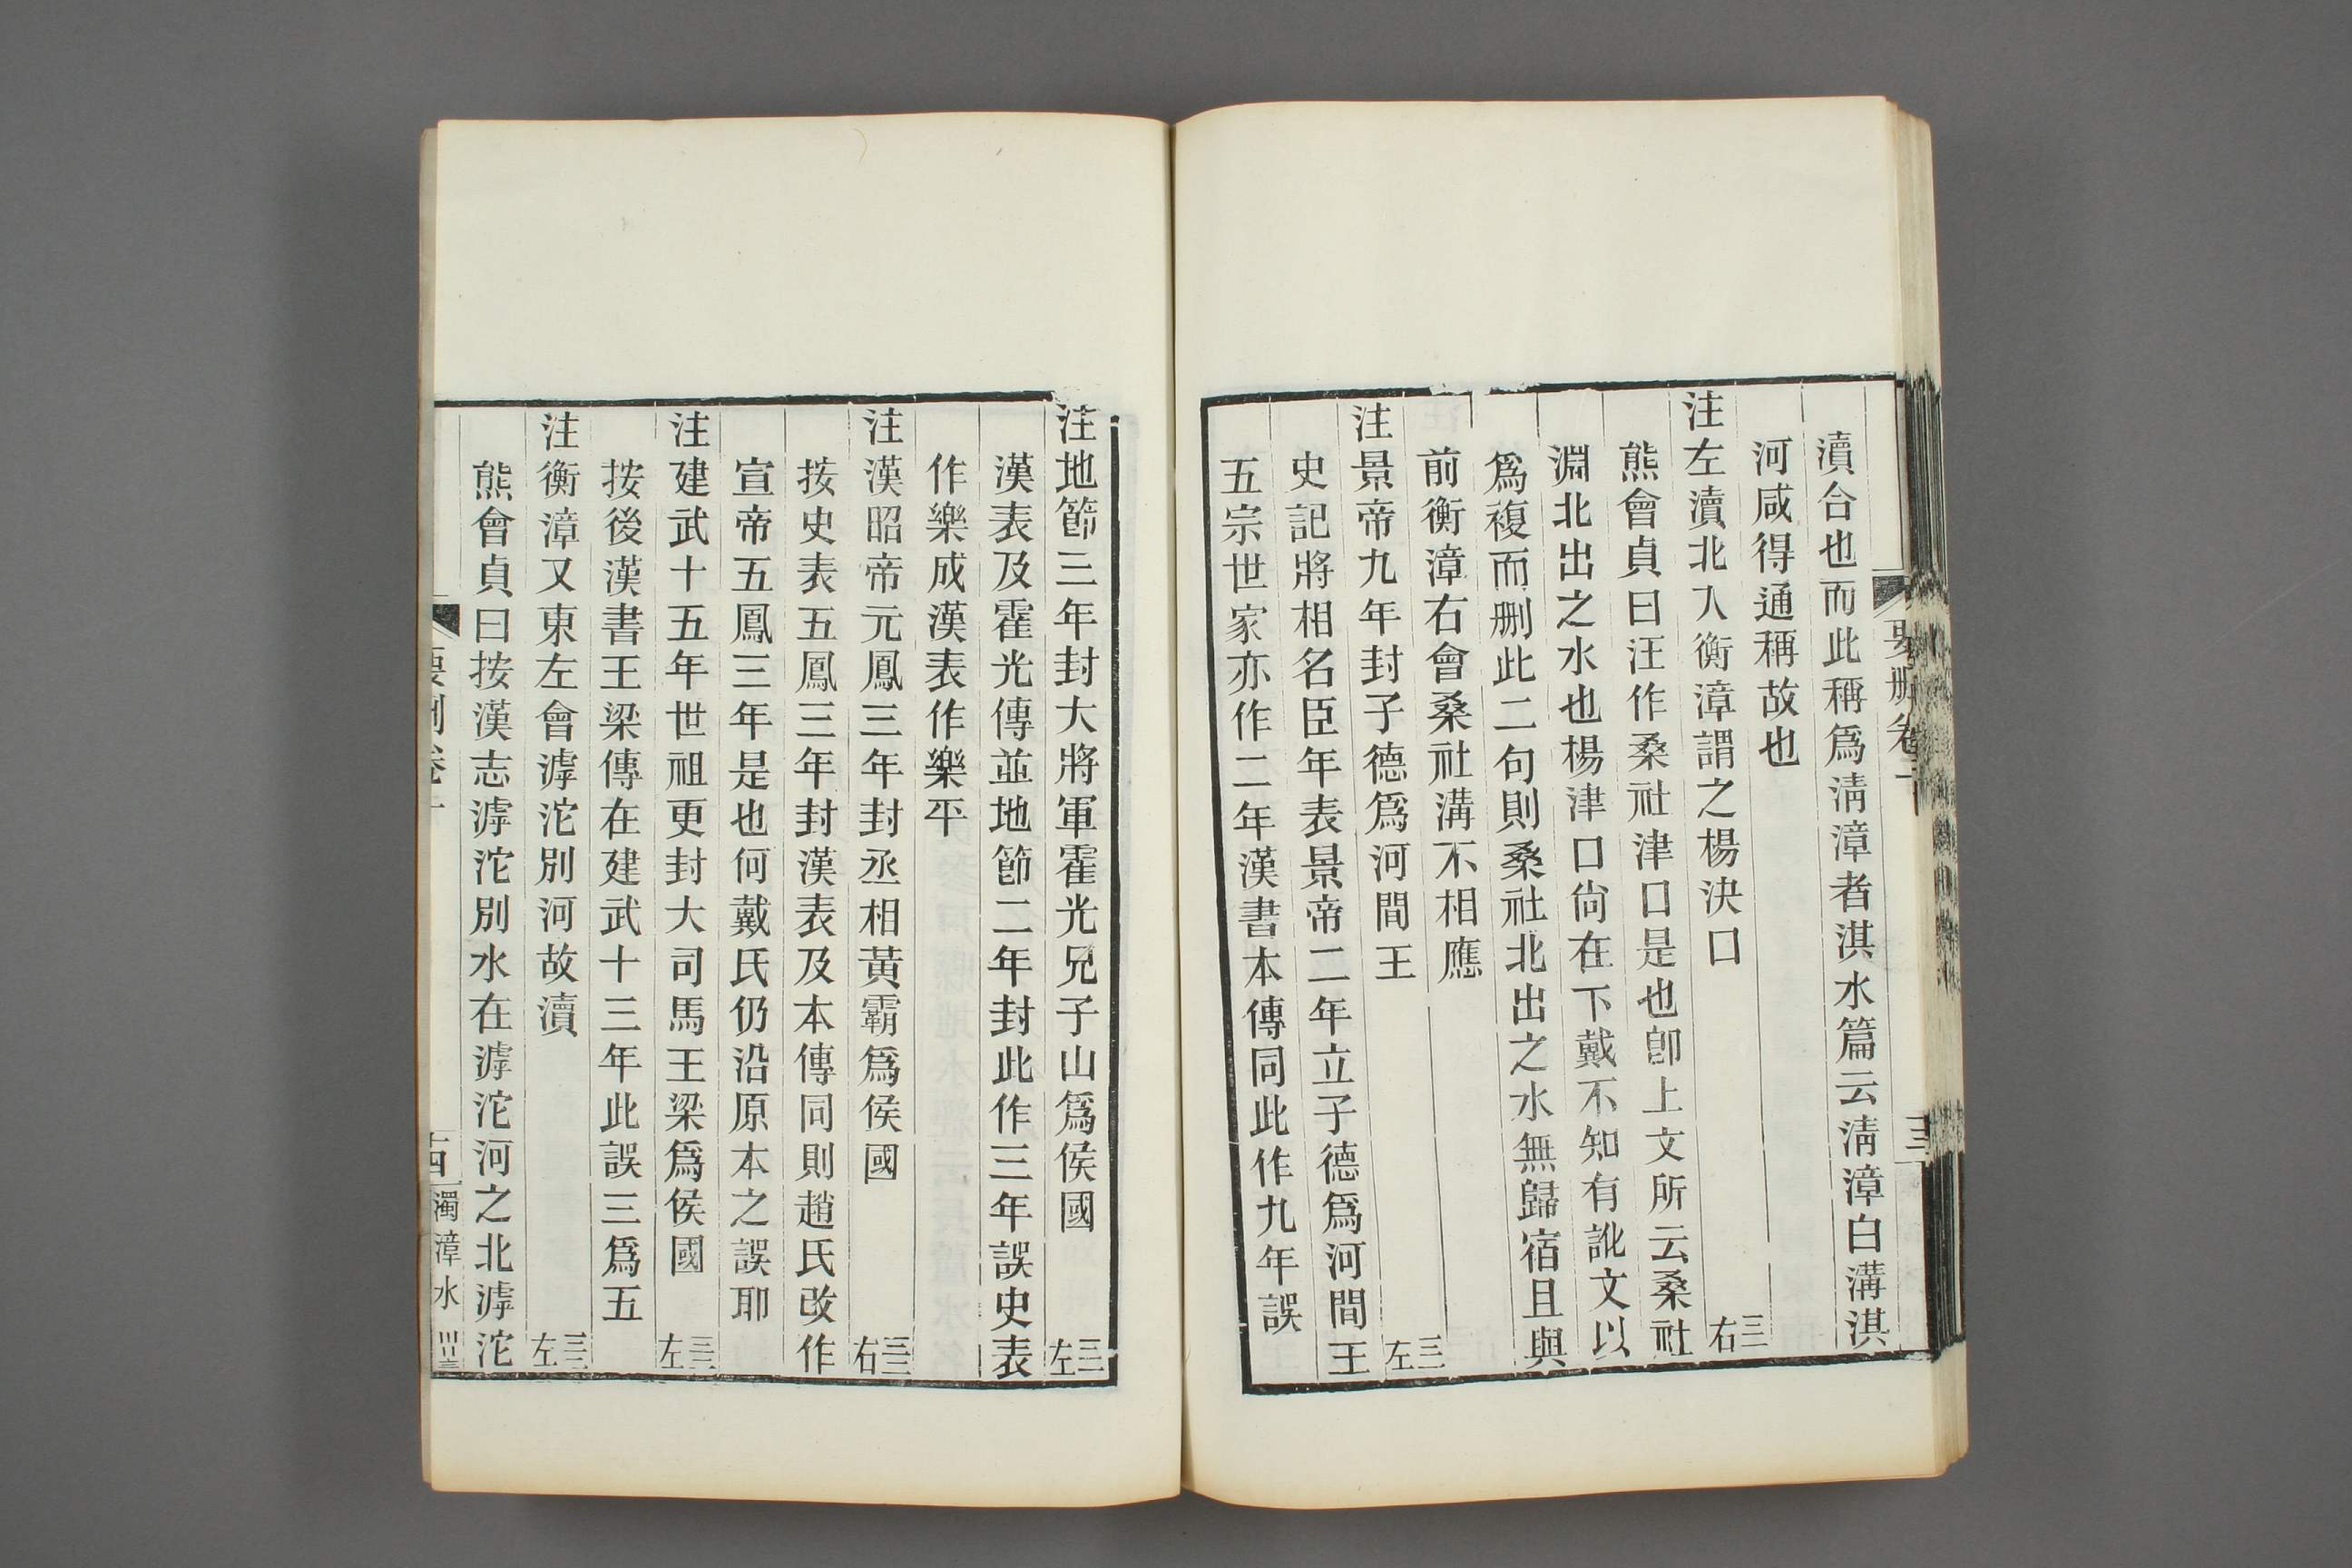 瀆合也而此稱爲淸漳者淇水篇云淸漳白溝淇
河咸得通稱故也
注左瀆北入衡漳謂之楊決口 三三右
熊會貞曰汪作桑社津口是也卽上文所云桑社
淵北出之水也楊津口尙在下戴不知有訛文以
爲複而删此二句則桑社北出之水無歸宿且與
前衡漳右會桑社溝不相應
注景帝九年封子德爲河間王 三三左
史記將相名臣年表景帝二年立子德爲河間王
五宗世家亦作二年漢書本傳同此作九年誤
注地節三年封大將軍霍光兄子山爲侯國 三三左
漢表及霍光傳並地節二年封此作三年誤史表
作樂成漢表作樂平
注漢昭帝元鳳三年封丞相黃霸爲侯國
按史表五鳳三年封漢表及本傳同則趙氏改作
宣帝五鳳三年是也何戴氏仍沿原本之誤耶
注建武十五年世祖更封大司馬王梁爲侯國
按後漢書王梁傳在建武十三年此誤三爲五
注衡漳又東左會滹沱別河故瀆
熊會貞曰按漢志滹沱別水在滹沱河之北滹沱
要刪卷十
濁漳水